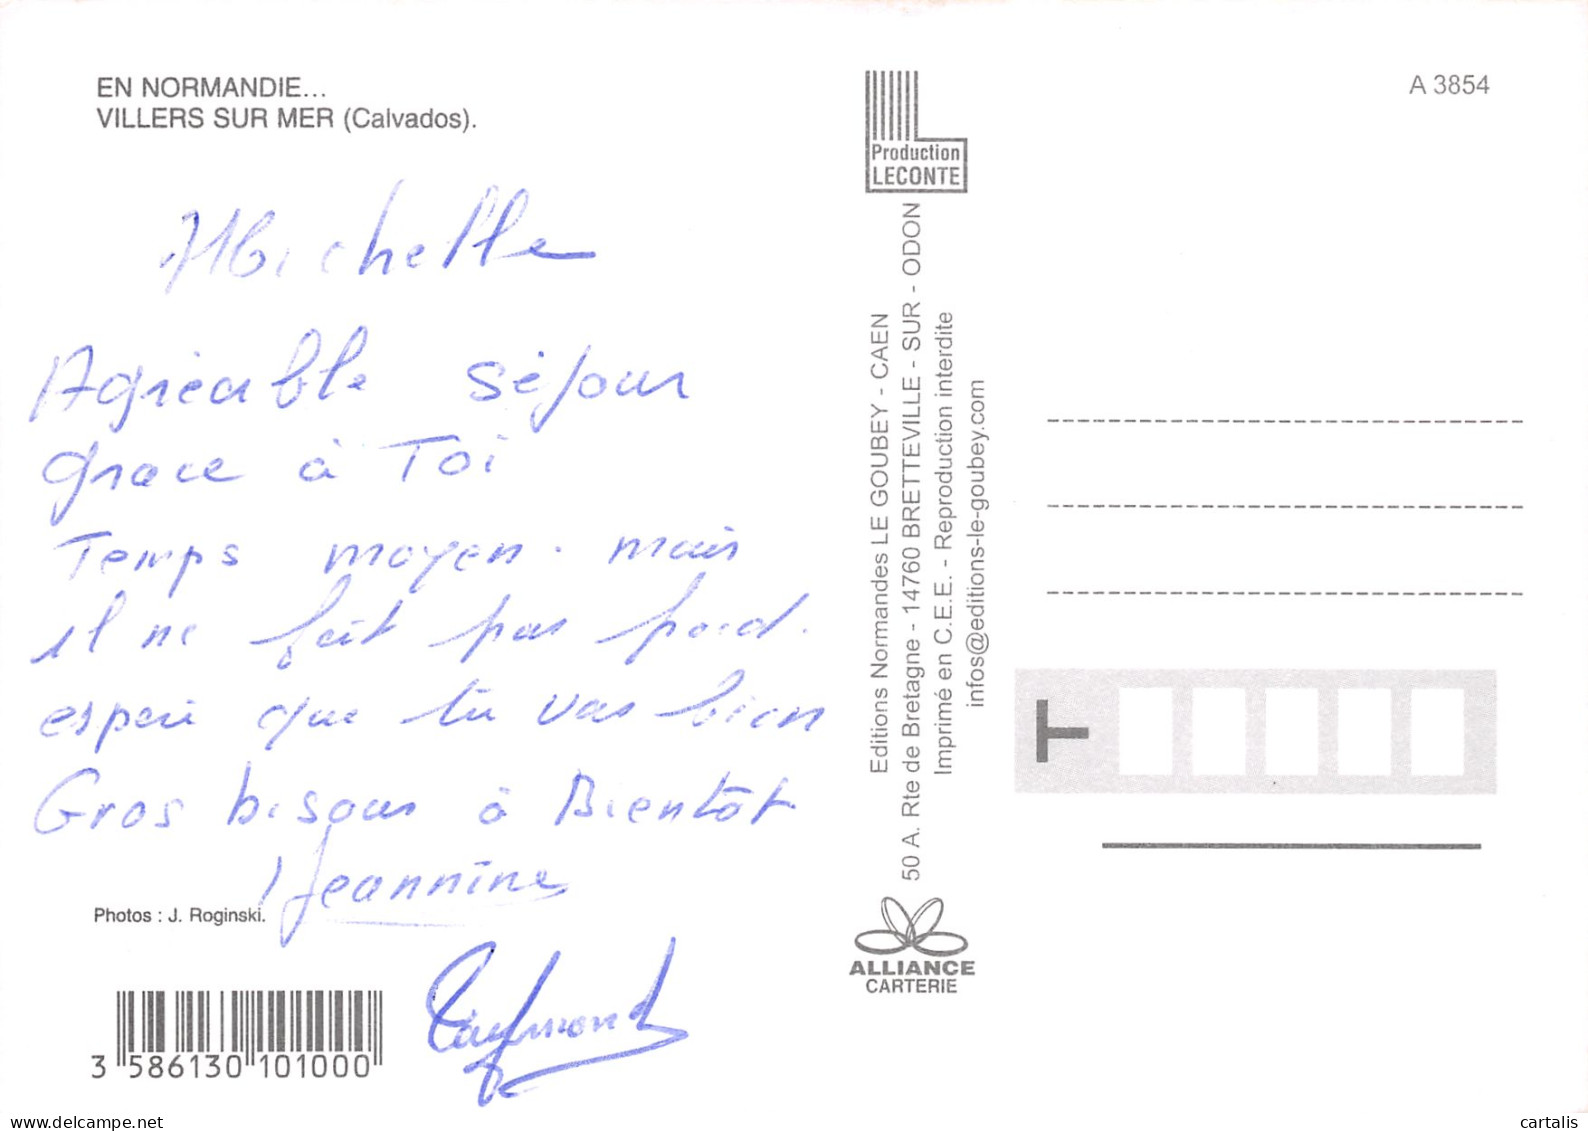 EN NORMANDIE...
VILLERS SUR MER (Calvados).
Michelle
Agréable séjour
grace à Toi
Temps moyen. mais
il ne fait pas froid.
espère que tu vas bien
Gros bisous à Bientôt
Jeannine
Raymond
Photos : J. Roginski.
3 586130 101000
Production
LECONTE
Editions Normandes LE GOUBEY - CAEN
50 A. Rte de Bretagne - 14760 BRETTEVILLE - SUR - ODON
Imprimé en C.E.E. - Reproduction interdite
infos@editions-le-goubey.com
ALLIANCE
CARTERIE
A 3854
T
www.delcampe.net
cartalis